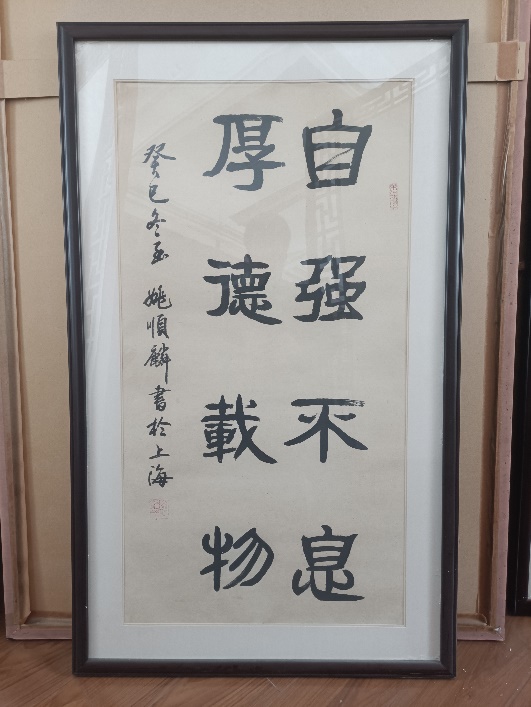 自强不息
厚德載物
癸巳冬至 姚順麟書於上海